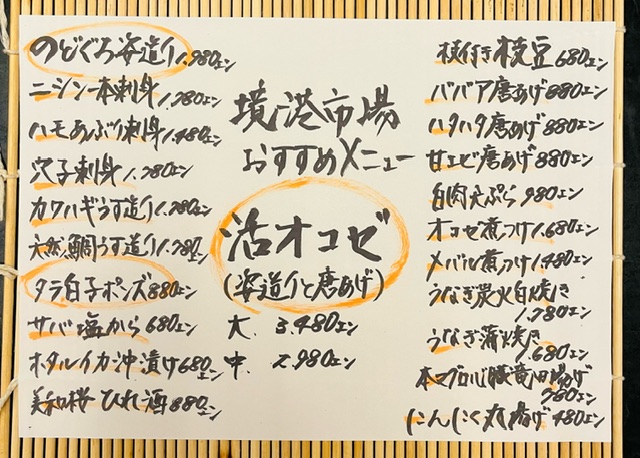 のどぐろ姿造り 1,980エン
ニシン一本刺身 1,780エン
ハモあぶり刺身 1,480エン
穴子刺身 1,280エン
カワハギうす造り 1,780エン
天然鯛うす造り 1,780エン
タラ白子ポンズ 880エン
サバ塩から 680エン
ホタルイカ沖漬け 680エン
美和桜ひれ酒 880エン
境港市場
おすすめメニュー
活オコゼ
(姿造りと唐あげ)
大. 3.480エン
中. 2.980エン
枝付き枝豆 680エン
ババア唐あげ 880エン
ハタハタ唐あげ 880エン
甘エビ唐あげ 880エン
白肉天ぷら 980エン
オコゼ煮つけ 1,680エン
メバル煮つけ 1,480エン
うなぎ炭火白焼き
1,780エン
うなぎ蒲焼き
1,680エン
本マグロ心臓竜田揚げ
780エン
にんにく丸揚げ 480エン